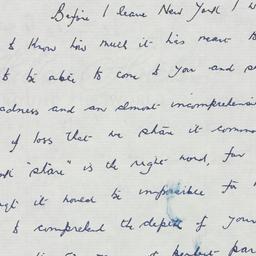 Before I leave New York I w
to know how much it has meant to
to be able to come to you and s
adness and an almost incomprehensi
of loss that we share it commo
"share" is the right word, for
it would be impossible for
to comprehend the depth of your
perfect par